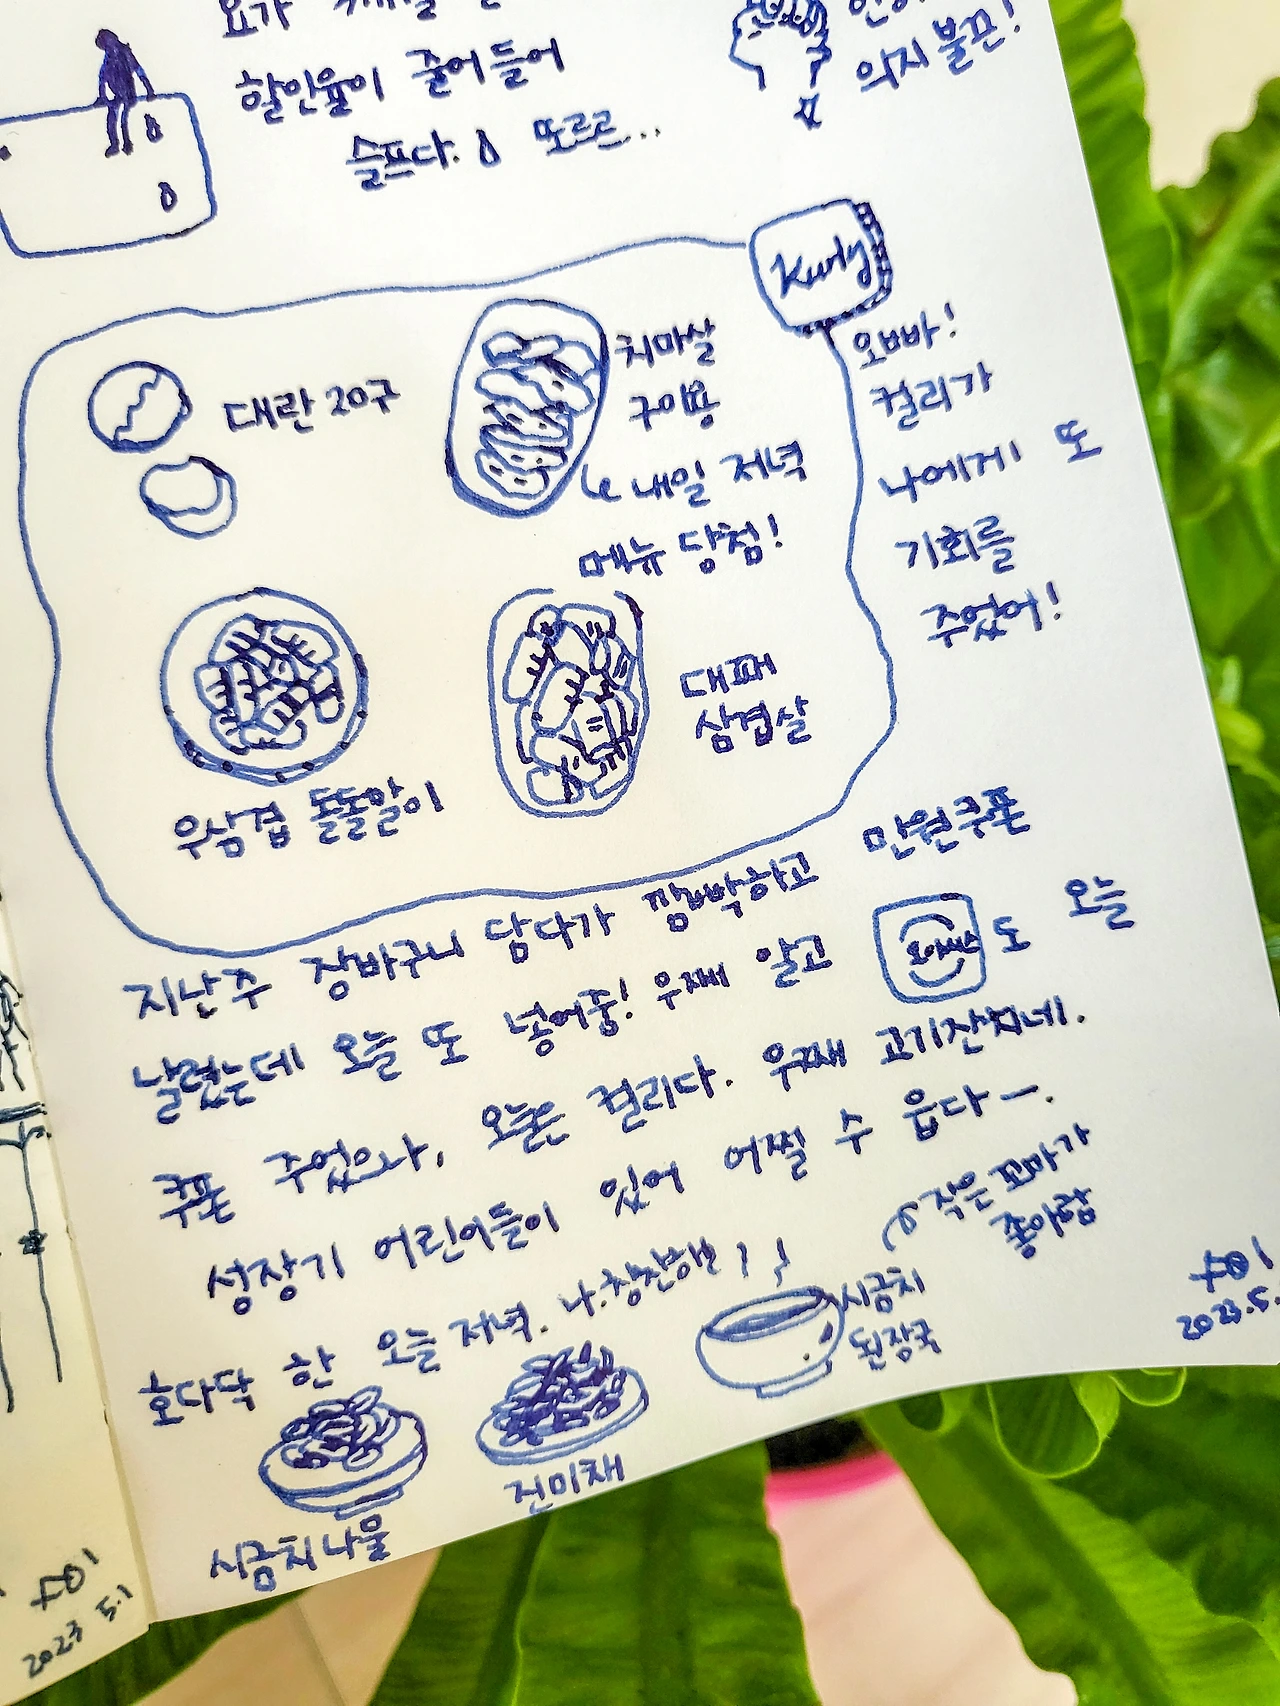 요가
할인율이 줄어들어
슬프다. 또르르...
의지 불끈!
Kurly
오빠!
컬리가
나에게 또
기회를
주었어!
대란 20구
치마살
구이용
내일 저녁
메뉴 당첨!
우삼겹 돌돌말이
대패
삼겹살
지난주 장바구니 담다가 깜빡하고 만원쿠폰
날렸는데 오늘 또 넣어줌! 우째 알고 도 오늘
쿠폰 주었으나, 오늘은 컬리다. 우째 고기잔치네.
성장기 어린이들이 있어 어쩔 수 읍다ㅡ.
작은 꼬마가
좋아함
후다닥 한 오늘 저녁. 나.칭찬해!
시금치
된장국
진미채
시금치나물
2023.5.
2023 5.1